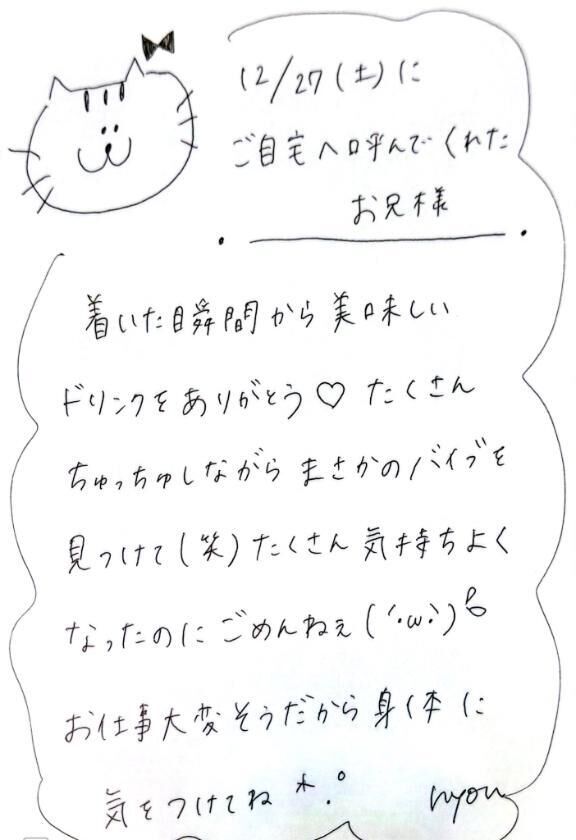 12/27(土)に
ご自宅へ呼んでくれた
お兄様
着いた瞬間から美味しい
ドリンクをありがとう♡ たくさん
ちゅっちゅしながら まさかのバイブを
見つけて(笑)たくさん 気持ちよく
なったのに ごめんねぇ(´･ω･`)
お仕事大変そうだから 身体に
気をつけてね